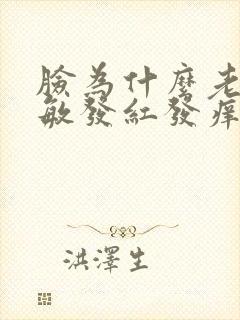 臉為什麼老
敏發紅發癢
洪澤生